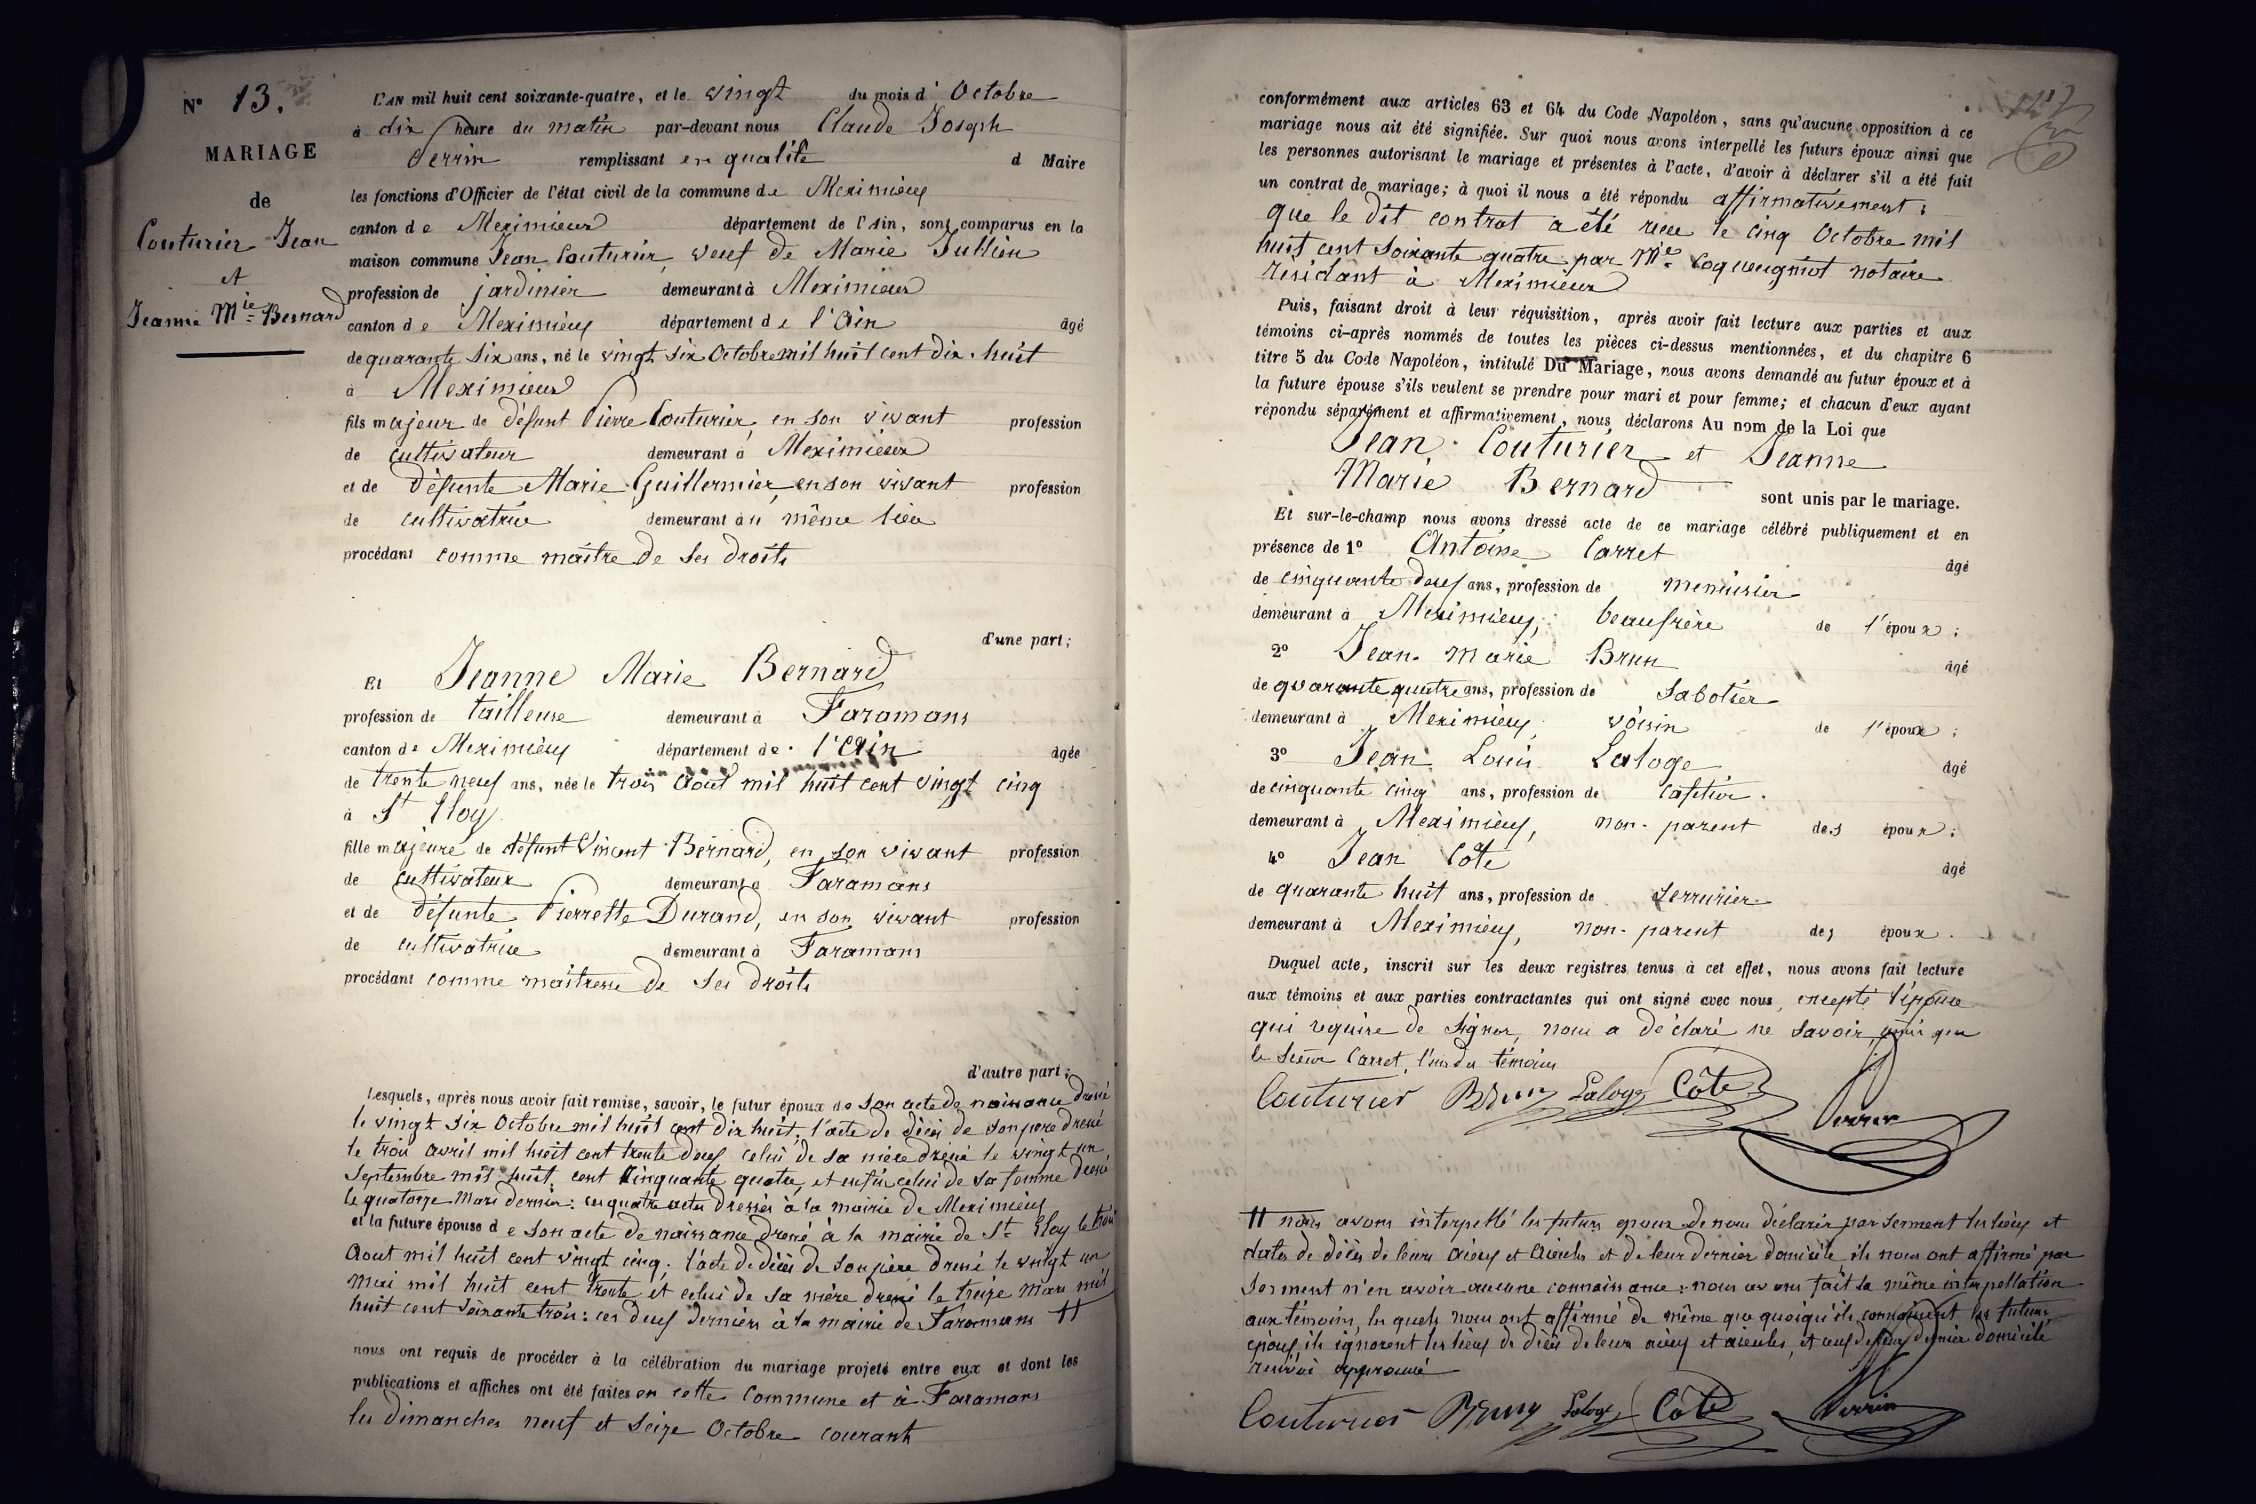 N° 13.
MARIAGE
de
Couturier Jean
et
Jeanne Mie Bernard
L'AN mil huit cent soixante-quatre, et le vingt du mois d'Octobre
à dix heure du matin par-devant nous Claude Joseph
Perrin remplissant en qualité d Maire
les fonctions d'Officier de l'état civil de la commune de Meximieux
canton de Meximieux département de l'Ain, sont comparus en la
maison commune Jean Couturier, veuf de Marie Jullien
profession de jardinier demeurant à Meximieux
canton de Meximieux département de l'Ain âgé
de quarante six ans, né le vingt six Octobre mil huit cent dix-huit
à Meximieux
fils majeur de défunt Pierre Couturier, en son vivant profession
de cultivateur demeurant à Meximieux
et de défunte Marie Guillermier, en son vivant profession
de cultivatrice demeurant au même lieu
procédant comme maître de ses droits
d'une part;
Et Jeanne Marie Bernard
profession de tailleuse demeurant à Faramans
canton de Meximieux département de l'Ain âgée
de trente neuf ans, née le trois Aout mil huit cent vingt cinq
à St Eloy
fille majeure de défunt Vincent Bernard, en son vivant profession
de cultivateur demeurant à Faramans
et de défunte Pierrette Durand, en son vivant profession
de cultivatrice demeurant à Faramans
procédant comme maitresse de ses droits
d'autre part;
Lesquels, après nous avoir fait remise, savoir, le futur époux de son acte de naissance dressé
le vingt six Octobre mil huit cent dix huit, l'acte de décès de son père dressé
le trois avril mil huit cent trente deux celui de sa mère dressé le vingt un
Septembre mil huit cent cinquante quatre, et enfin celui de sa femme dressé
le quatorze Mars dernier: ces quatre actes dressés à la mairie de Meximieux
et la future épouse de son acte de naissance dressé à la mairie de St Eloy le trois
Aout mil huit cent vingt cinq. l'acte de décès de son père dressé le vingt un
Mai mil huit cent trente et celui de sa mère dressé le treize Mars mil
huit cent soixante trois: ces deux derniers à la mairie de Faramans #
nous ont requis de procéder à la célébration du mariage projeté entre eux et dont les
publications et affiches ont été faites en cette commune et à Faramans
les dimanches neuf et seize Octobre courant
conformément aux articles 63 et 64 du Code Napoléon, sans qu'aucune opposition à ce
mariage nous ait été signifiée. Sur quoi nous avons interpellé les futurs époux ainsi que
les personnes autorisant le mariage et présentes à l'acte, d'avoir à déclarer s'il a été fait
un contrat de mariage; à quoi il nous a été répondu affirmativement;
que le dit contrat a été reçu le cinq Octobre mil
huit cent soixante quatre par Me Coqueugniot notaire
résidant à Meximieux
Puis, faisant droit à leur réquisition, après avoir fait lecture aux parties et aux
témoins ci-après nommés de toutes les pièces ci-dessus mentionnées, et du chapitre 6
titre 5 du Code Napoléon, intitulé Du Mariage, nous avons demandé au futur époux et à
la future épouse s'ils veulent se prendre pour mari et pour femme; et chacun d'eux ayant
répondu séparément et affirmativement, nous déclarons Au nom de la Loi que
Jean Couturier et Jeanne
Marie Bernard sont unis par le mariage.
Et sur-le-champ nous avons dressé acte de ce mariage célébré publiquement et en
présence de 1° Antoine Carret âgé
de cinquante deux ans, profession de menuisier
demeurant à Meximieux, beaufrère de l'époux;
2° Jean-Marie Brun âgé
de quarante quatre ans, profession de sabotier
demeurant à Meximieux, voisin de l'époux;
3° Jean Louis Laloge âgé
de cinquante cinq ans, profession de cafetier.
demeurant à Meximieux, non-parent des époux;
4° Jean Côte âgé
de quarante huit ans, profession de serrurier
demeurant à Meximieux, non-parent des époux.
Duquel acte, inscrit sur les deux registres tenus à cet effet, nous avons fait lecture
aux témoins et aux parties contractantes qui ont signé avec nous, excepté l'épouse
qui requise de signer, nous a déclaré ne savoir, ainsi que
le sieur Carret, l'un des témoins
Couturier Brun Laloge Côte
Perrin
# nous avons interpellé les futurs époux de nous déclarer par serment les lieux et
dates de décès de leurs aïeux et aïeules et de leur dernier domicile, ils nous ont affirmé par
serment n'en avoir aucune connaissance: nous avons fait la même interpellation
aux témoins, lesquels nous ont affirmé de même que quoiqu'ils connaissent les futurs
époux, ils ignorent les lieux de décès de leurs aïeux et aïeules, et ceux de leur dernier domicile
renvoi approuvé
Couturier Brun Laloge Côte Perrin